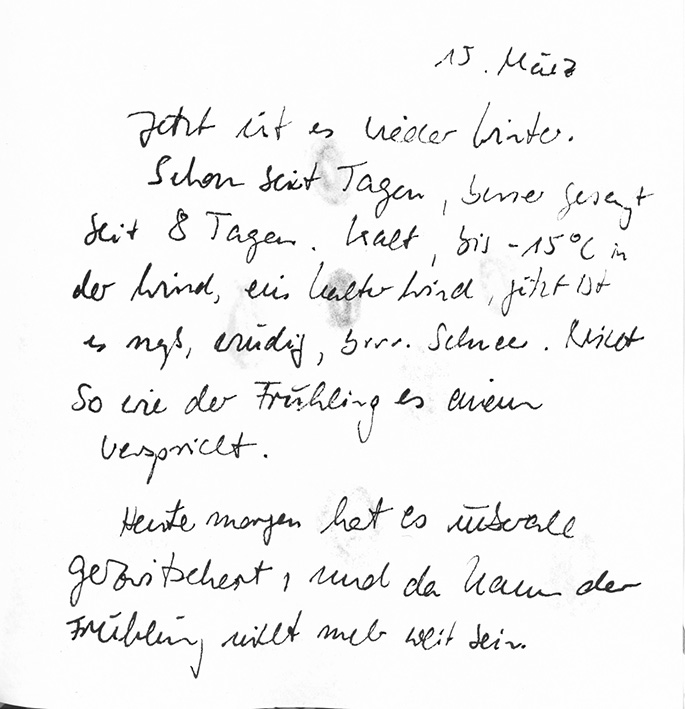 15. März
Jetzt ist es wieder Winter.
Schon seit Tagen, besser gesagt
seit 8 Tagen. Kalt, bis -15°C in
der Wind, ein kalter Wind, jetzt ist
es nass, windig, brrr. Schnee. Nicht
So wie der Frühling es einem
verspricht.
Heute morgen hat es überall
gezwitschert, und da kann der
Frühling nicht mehr weit sein.